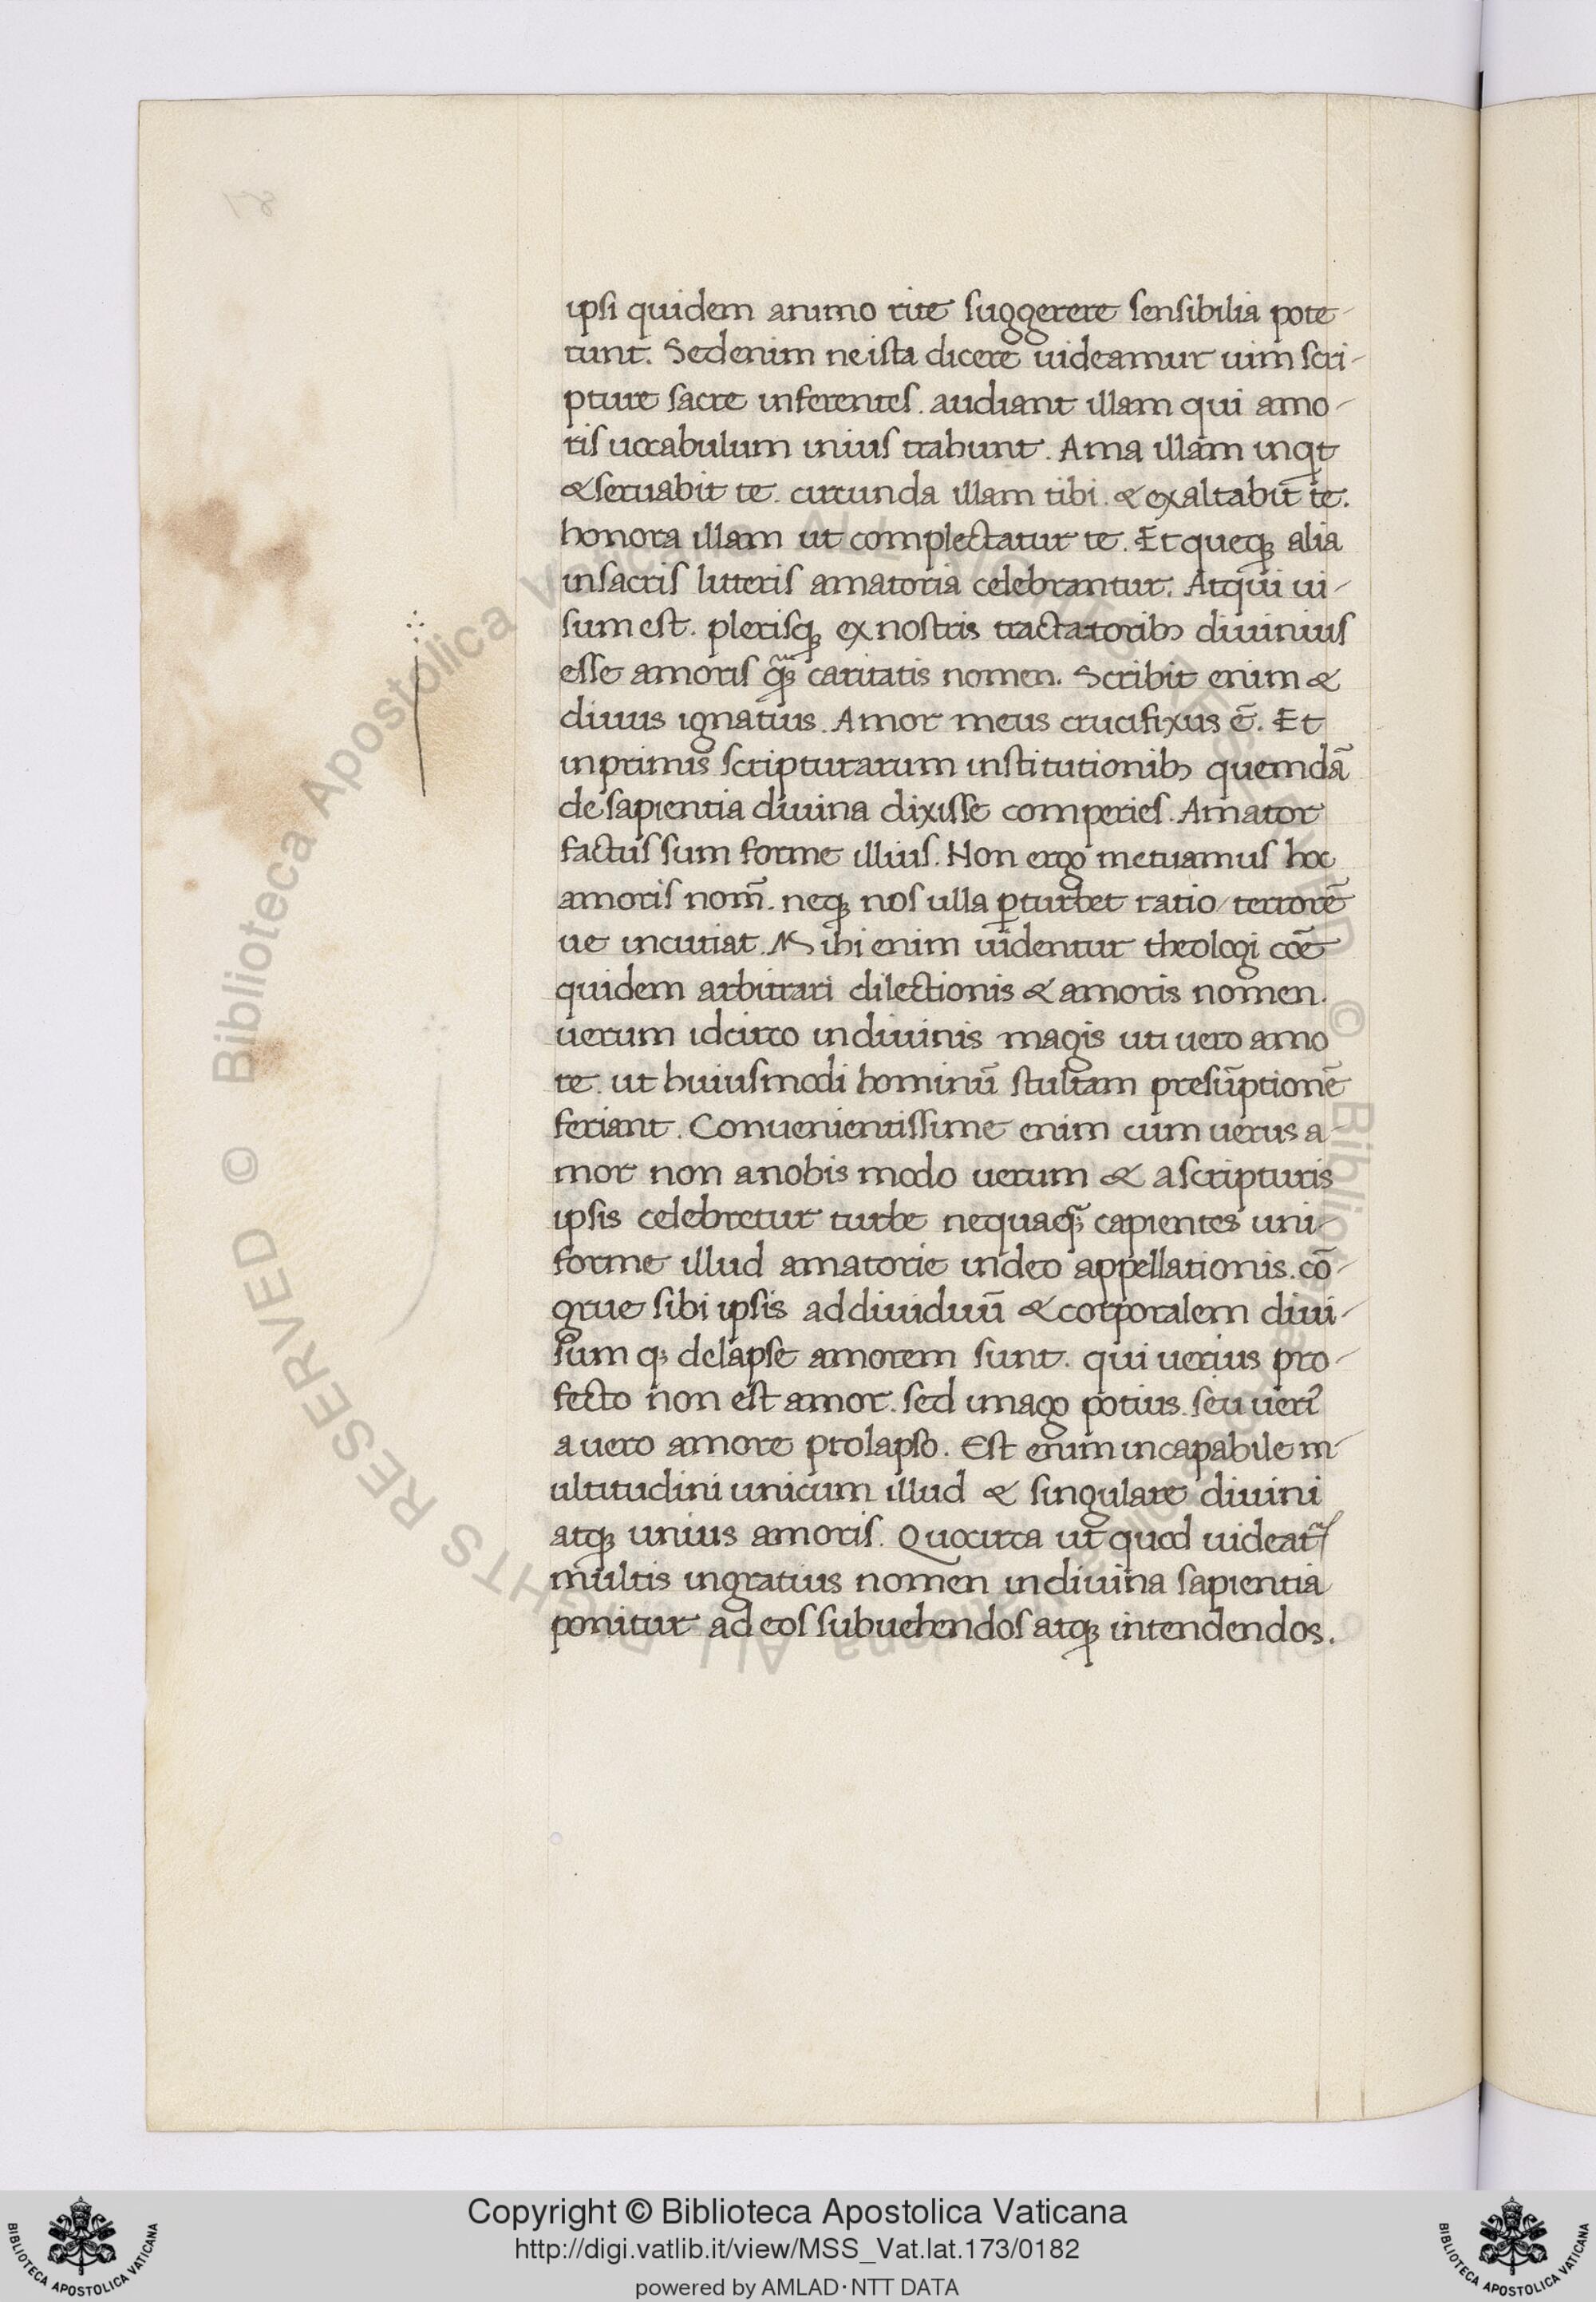 ipsi quidem animo rite suggerere sensibilia pote-
runt. Sed enim ne ista dicere uideamur uim scri-
pture sacre inferentes. audiant illam qui amo-
ris uocabulum inius trahunt. Ama illam inqt
& seruabit te. circunda illam tibi. & exaltabit te.
honora illam ut complectatur te. Et queq; alia
in sacris litteris amatoria celebrantur. Atqui ui-
sum est. plerisq; ex nostris tractatorib; diuinius
esse amoris q̃; caritatis nomen. Scribit enim &
diuus ignatius. Amor meus crucifixus ē. Et
inprimis scripturarum institutionib; quemdā
de sapientia diuina dixisse comperies. Amator
factus sum forme illius. Non ergo metuamus hoc
amoris nom̄. neq; nos ulla ꝑturbet ratio/terrorē
ue incutiat. Mihi enim uidentur theologi cōe
quidem arbitrari dilectionis & amoris nomen.
uerum idcirco in diuinis magis uti uero amo
re. ut huiusmodi hominū stultam presūptionē
feriant. Conuenientissime enim cum uerus a-
mor non a nobis modo uerum & a scripturis
ipsis celebretur turbe nequaq̃; capientes uni-
forme illud amatorie in deo appellationis. cō-
grue sibi ipsis ad diuiduū & corporalem diui-
sum q; delapse amorem sunt. qui uerius pro-
fecto non est amor. sed imago potius. seu ueri᾽
a uero amore prolapso. Est enim incapabile m-
ultitudini unicum illud & singulare diuini
atq; unius amoris. Quocirca ut quod uideat᷑
multis ingratius nomen in diuina sapientia
ponitur ad eos subuehendos atq; intendendos.
Copyright © Biblioteca Apostolica Vaticana
http://digi.vatlib.it/view/MSS_Vat.lat.173/0182
powered by AMLAD·NTT DATA
BIBLIOTECA APOSTOLICA VATICANA
BIBLIOTECA APOSTOLICA VATICANA